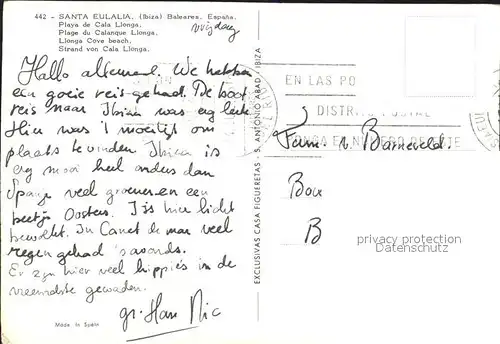 442 - SANTA EULALIA, (Ibiza) Baleares. España.
Playa de Cala Llonga.
Plage du Calanque Llonga.
Llonga Cove beach.
Strand von Cala Llonga.
vrijdag
Hallo allemaal. We hebben
een goeie reis gehad. De boot
reis naar Ibiza was erg leuk.
Hier was 't moeilijk om
plaats te vinden Ibiza is
erg mooi heel anders dan
Spanje veel groener en een
beetje Oosters. Is hier licht
bewolkt. In Canet de mar veel
regen gehad 's avonds.
Er zijn hier veel hippies in de
vreemdste gewaden.
gr. Han Nic
Made in Spain
EXCLUSIVAS CASA FIGUERETAS - S. ANTONIO ABAD - IBIZA
EN LAS PO
DISTRITO POSTAL
PONGA EN
Fam. v. Barneveld
B
privacy protection
for samples